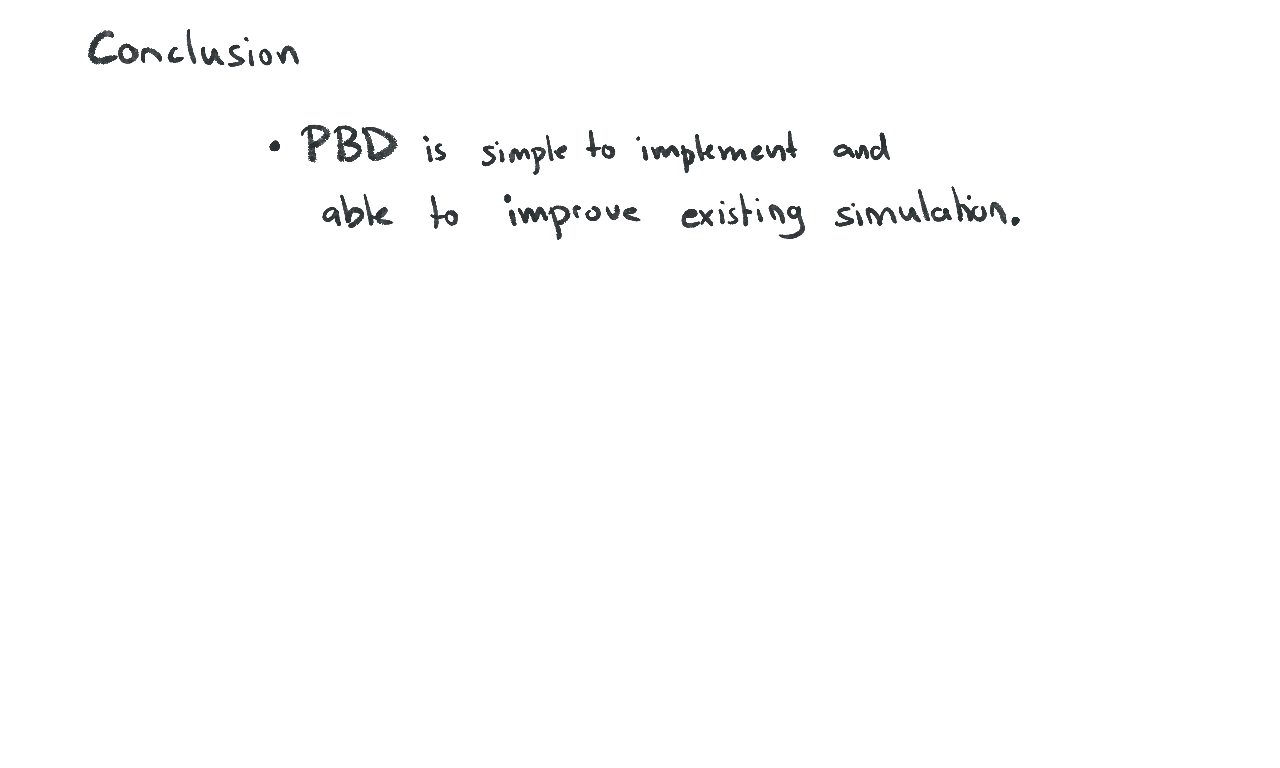 Conclusion
• PBD is simple to implement and
able to improve existing simulation.